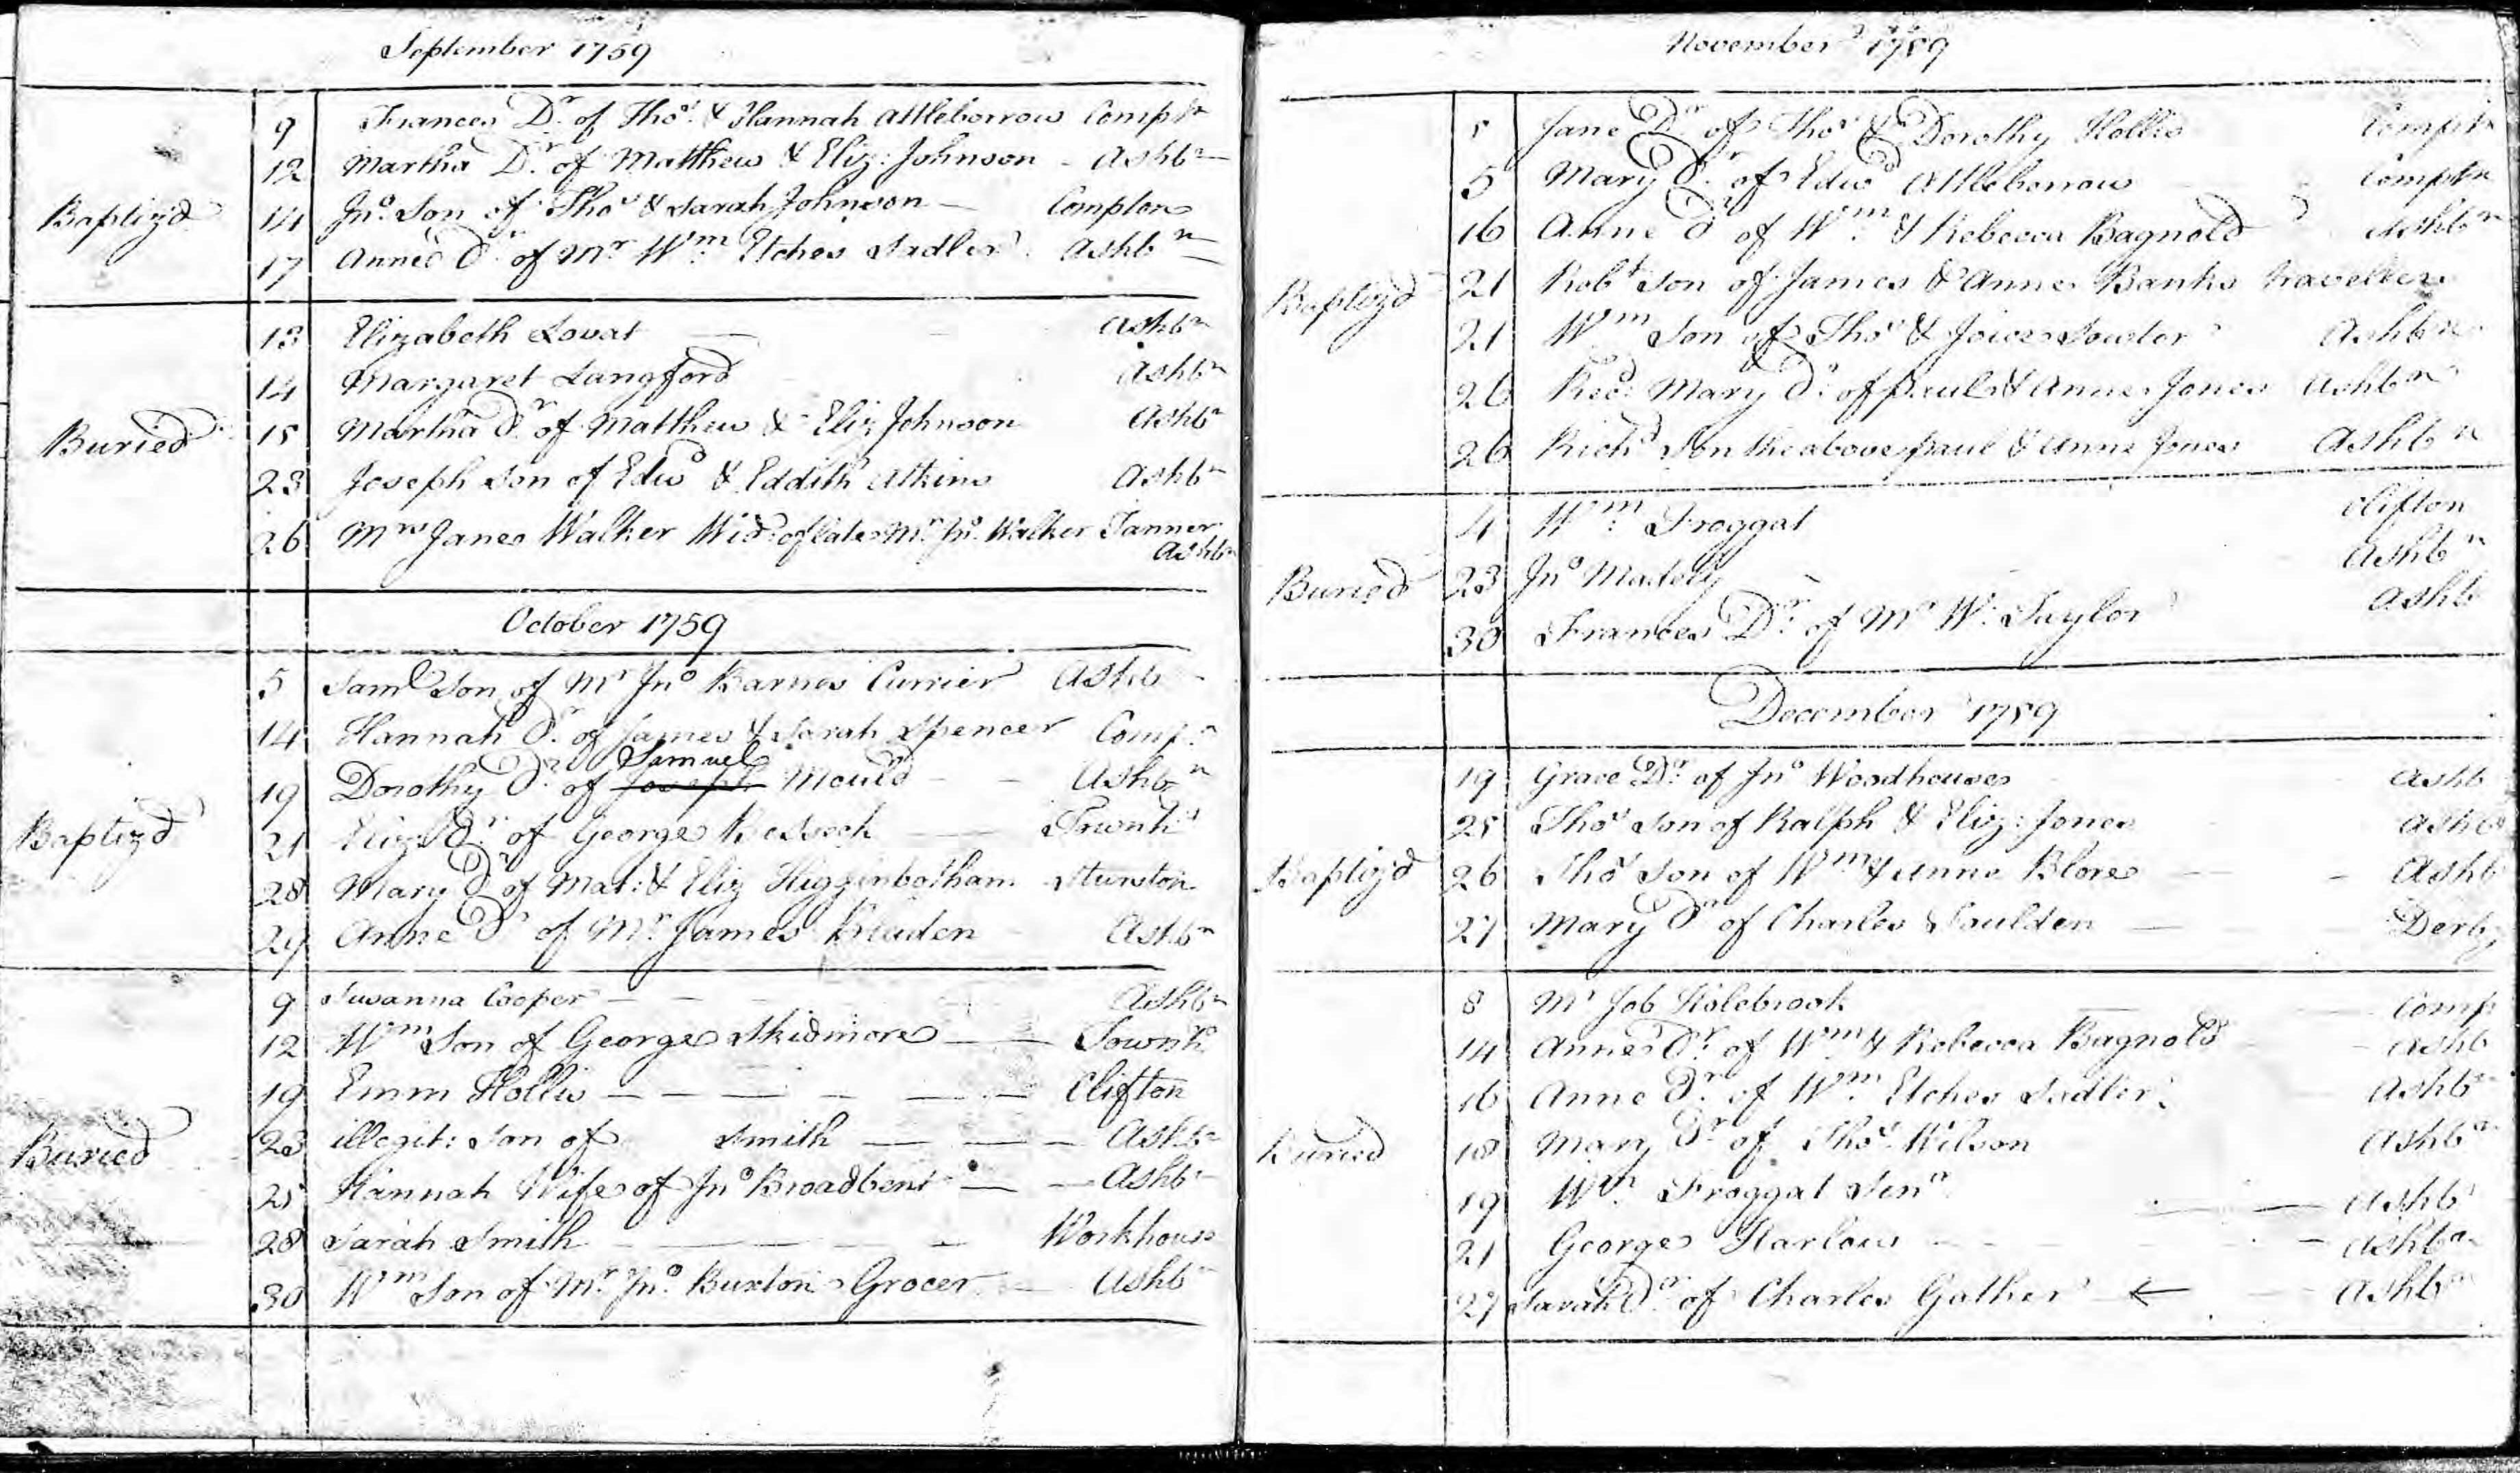 September 1759
Baptiz'd
9 Frances Dr. of Thos. & Hannah Attleborrow Comptn
12 Martha Dr. of Matthew & Eliz: Johnson - Ashbn
14 Jno. Son of Thos & Sarah Johnson - Compton
17 Anne Dr. of Mr Wm. Etches Sadler Ashbn
Buried
13 Elizabeth Lovat Ashbn
14 Margaret Langford Ashbn
15 Martha Dr. of Matthew & Eliz Johnson Ashbn
23 Joseph Son of Edwd & Eddith Atkins Ashbn
26 Mrs Jane Walker Wid: of late Mr. Jno. Walker Tanner
Ashbn
October 1759
Baptiz'd
5 Saml Son of Mr Jno Barnes Currier Ashb
14 Hannah Dr. of James & Sarah Spencer Comp.n
Samuel
19 Dorothy Dr. of Joseph Mould - - Ashbn
21 Eliz Dr. of George
28 Mary Dr of Mat: & Eliz Higginbotham Sturston
29 Anne Dr of Mr. James Ashbn
Buried
9 Susanna Cooper - - Ashbn
12 Wm Son of George Skidmore
19 Emm Hollis - - - - - - Clifton
23 illegit: Son of Smith - - - Ashbn
25 Hannah Wife of Jno Broadbent - - Ashbn
28 Sarah Smith - - - - Workhouse
30 Wm Son of Mr. Jno. Buxton Grocer - Ashbn
November 1759
Baptiz'd
Jane Dr. of Thos & Dorothy Hollis Comptn
5 Mary Dr. of Edwd Attleborrow Comptn
16 Anne Dr of Wm. & Rebecca Bagnold Ashbn
21 Robt Son of James & Anne Banks travellers
21 Wm Son of Thos & Joice Sowter Ashbn
26 Recd: Mary Dr. of Paul & Anne Jones Ashbn
26 Richd Son the above Paul & Anne Jones Ashbn
Buried
4 Wm. Froggat Clifton
23 Jno Madely Ashbn
30 Frances Dr. of Mr W. Taylor Ashb
December 1759
Baptiz'd
19 Grace Dr. of Jno Woodhouse Ashb
25 Thos Son of Ralph & Eliz: Jones Ashb
26 Thos Son of Wm & Anne Blore - - Ashb
27 Mary Dr of Charles Foulden - Derby
Buried
8 Mr Job Holebrook - - Comp
14 Anne Dr. of Wm & Rebecca Bagnold - Ashb
16 Anne Dr. of Wm. Etches Sadler Ashbn
18 Mary Dr of Thos. Wilson Ashbn
19 Wm. Froggat Senr - Ashb
21 George Harlow - - Ashbn
27 Sarah Dr. of Charles Gather ← - Ashbn